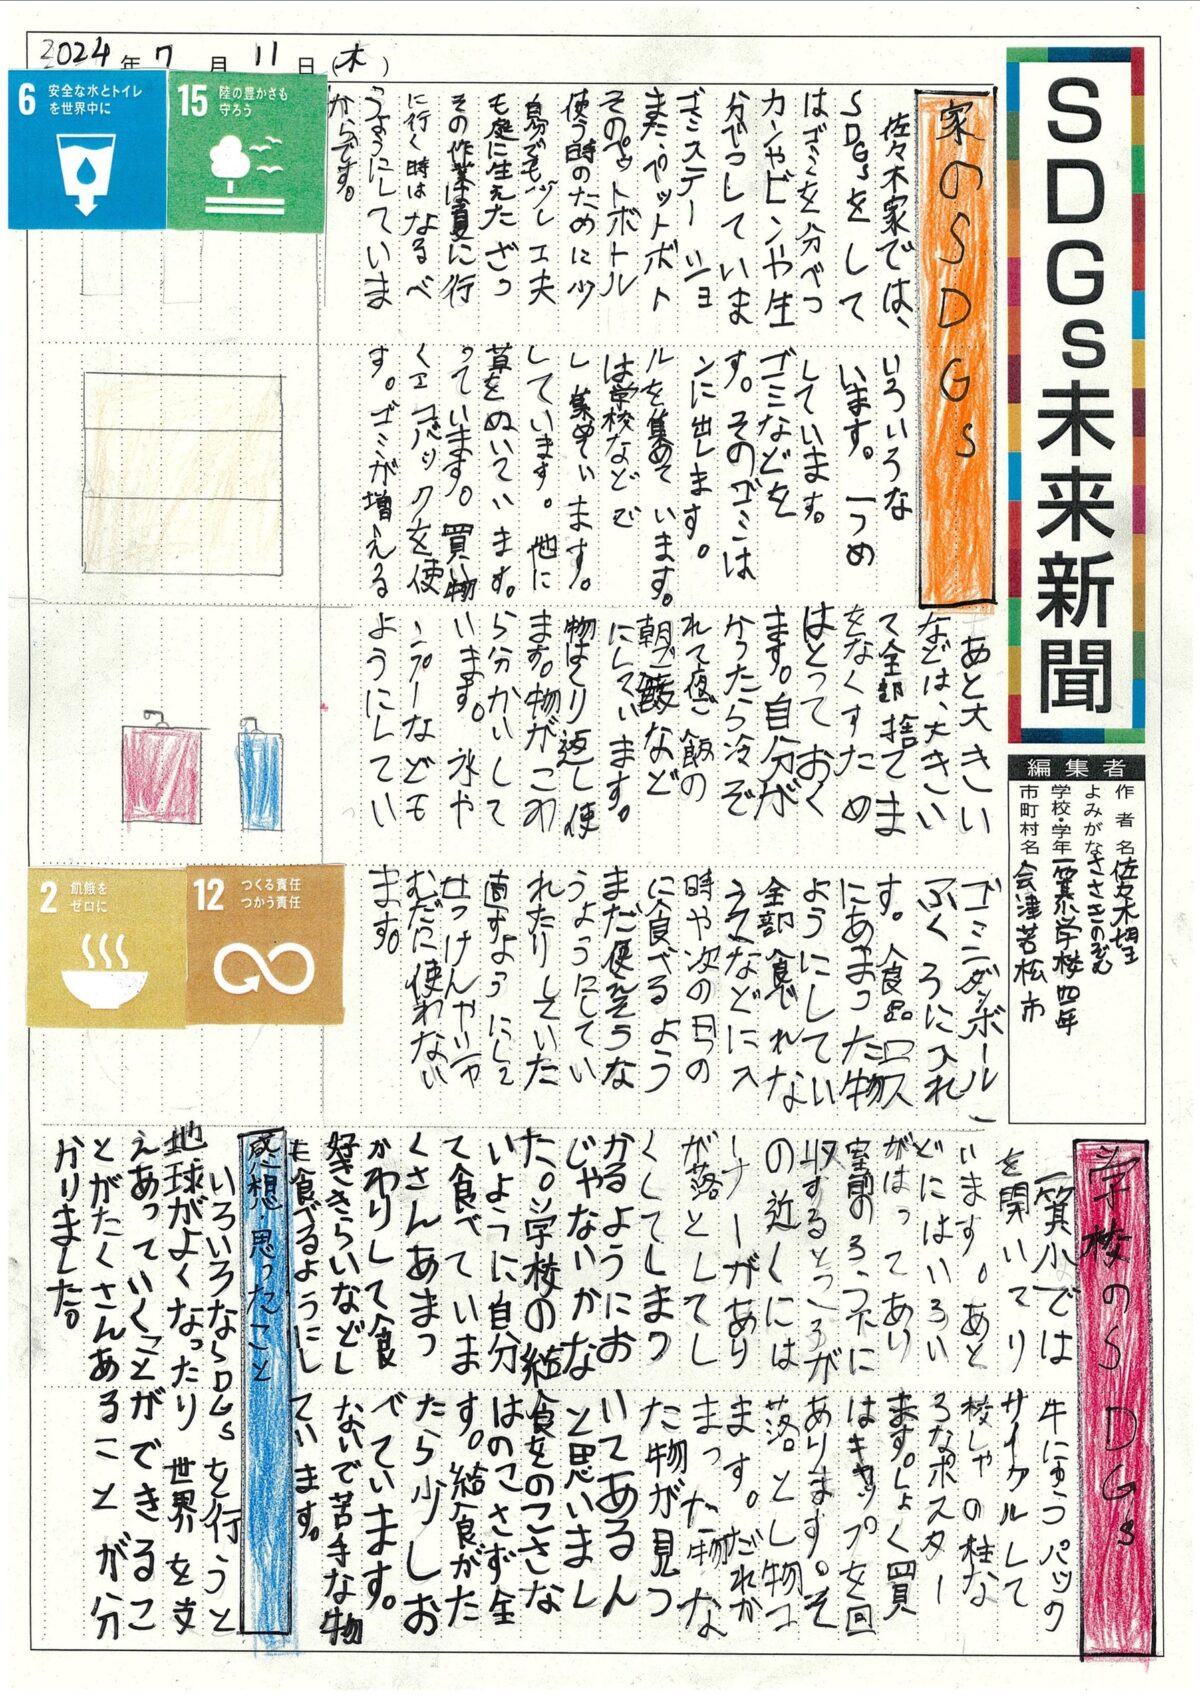 2024年7月11日(木)
SDGs未来新聞
編集者
作者名 佐々木望
よみがな ささきのぞむ
学校・学年 一箕小学校四年
市町村名 会津若松市
家のSDGs
佐々木家では、いろいろな
SDGsをしています。一つめ
はゴミを分べつしています。
カンやビンや生ゴミなどを
分べつしています。そのゴミは
ゴミステーションに出します。
また、ペットボトルを集めています。
そのペットボトルは学校などで
使う時のために少し集めています。
自分でも少し工夫しています。他に
も庭に生えたざっ草をぬいています。
その作業は夏に行っています。買い物
に行く時はなるべくエコバックを使
うようにしています。ゴミが増える
からです。
あと大きいゴミ(ダンボール)
などは、大きいふくろに入れ
て全部捨てます。食品ロス
をなくすためにあまった物
はとっておくようにしてい
ます。自分が全部食べれな
かったら冷ぞうこなどに入
れて夜ご飯の時や次の日の
朝ご飯などに食べるよう
にしています。まだ使えそうな
物はくり返し使うようにしてい
ます。物がこわれたりしていた
ら分かいして直すようにして
います。水やせっけんやシャ
ンプーなどもむだに使わない
ようにしています。
6 安全な水とトイレを世界中に
15 陸の豊かさも守ろう
2 飢餓をゼロに
12 つくる責任つかう責任
学校のSDGs
一箕小では牛にゅうパック
を開いてリサイクルして
います。あと校しゃの柱な
どにはいろいろなポスター
がはってあります。しょく買
室前のろう下にはキャップを回
収するところがあります。そ
の近くには落とし物コ
ーナーがあります。だれか
が落としてしまった物な
くしてしまった物が見つ
かるようにおいてあるん
じゃないかなと思いまし
た。学校の給食をのこさな
いように自分はのこさず全
て食べています。給食がた
くさんあまったら少しお
かわりして食べています。
好ききらいなどしないで苦手な物
も食べるようにしています。
感想・思ったこと
いろいろなSDGsを行うと
地球がよくなったり世界を支
えあっていくことができるこ
とがたくさんあることが分
かりました。